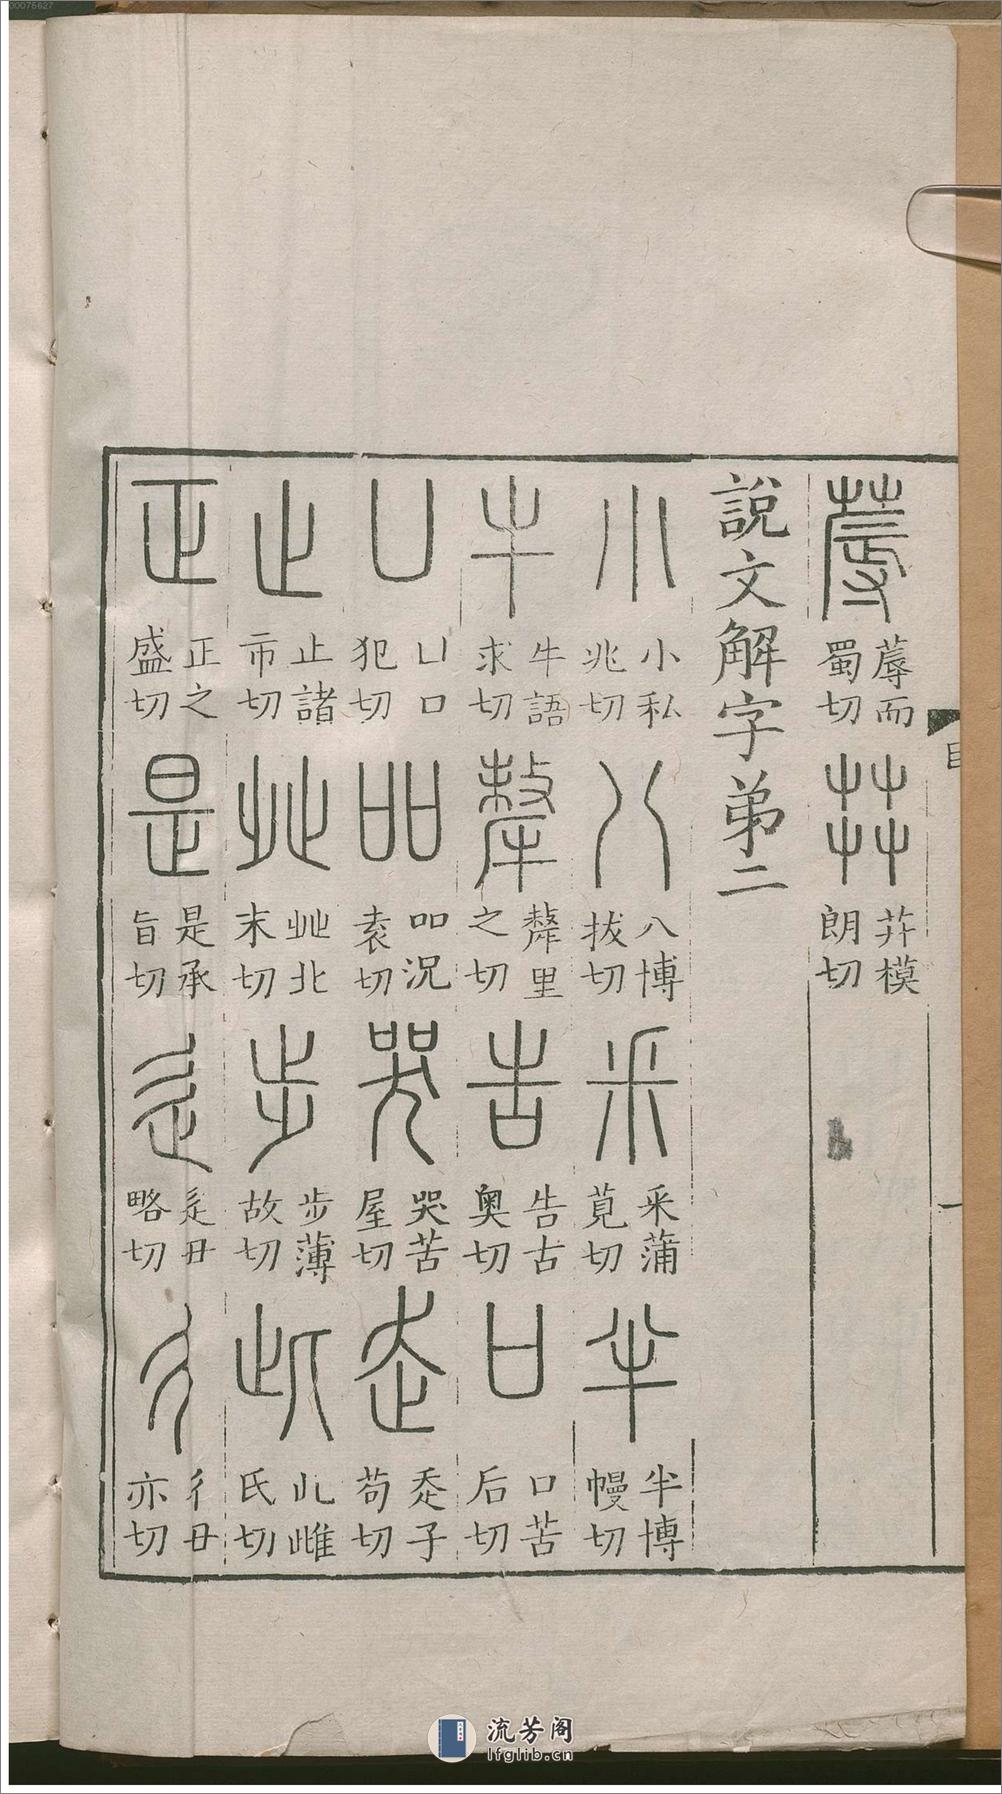 蓐 蓐而蜀切 茻 茻模朗切
說文解字弟二
小 小私兆切 八 八博拔切 釆 釆蒲莧切 半 半博幔切
牛 牛語求切 犛 犛里之切 告 告古奧切 口 口苦后切
凵 凵口犯切 吅 吅況袁切 哭 哭苦屋切 走 赱子苟切
止 止諸市切 癶 癶北末切 步 步薄故切 此 此雌氏切
正 正之盛切 是 是承旨切 辵 辵丑略切 彳 彳丑亦切
目
一
00075627
流芳阁
lfglib.cn